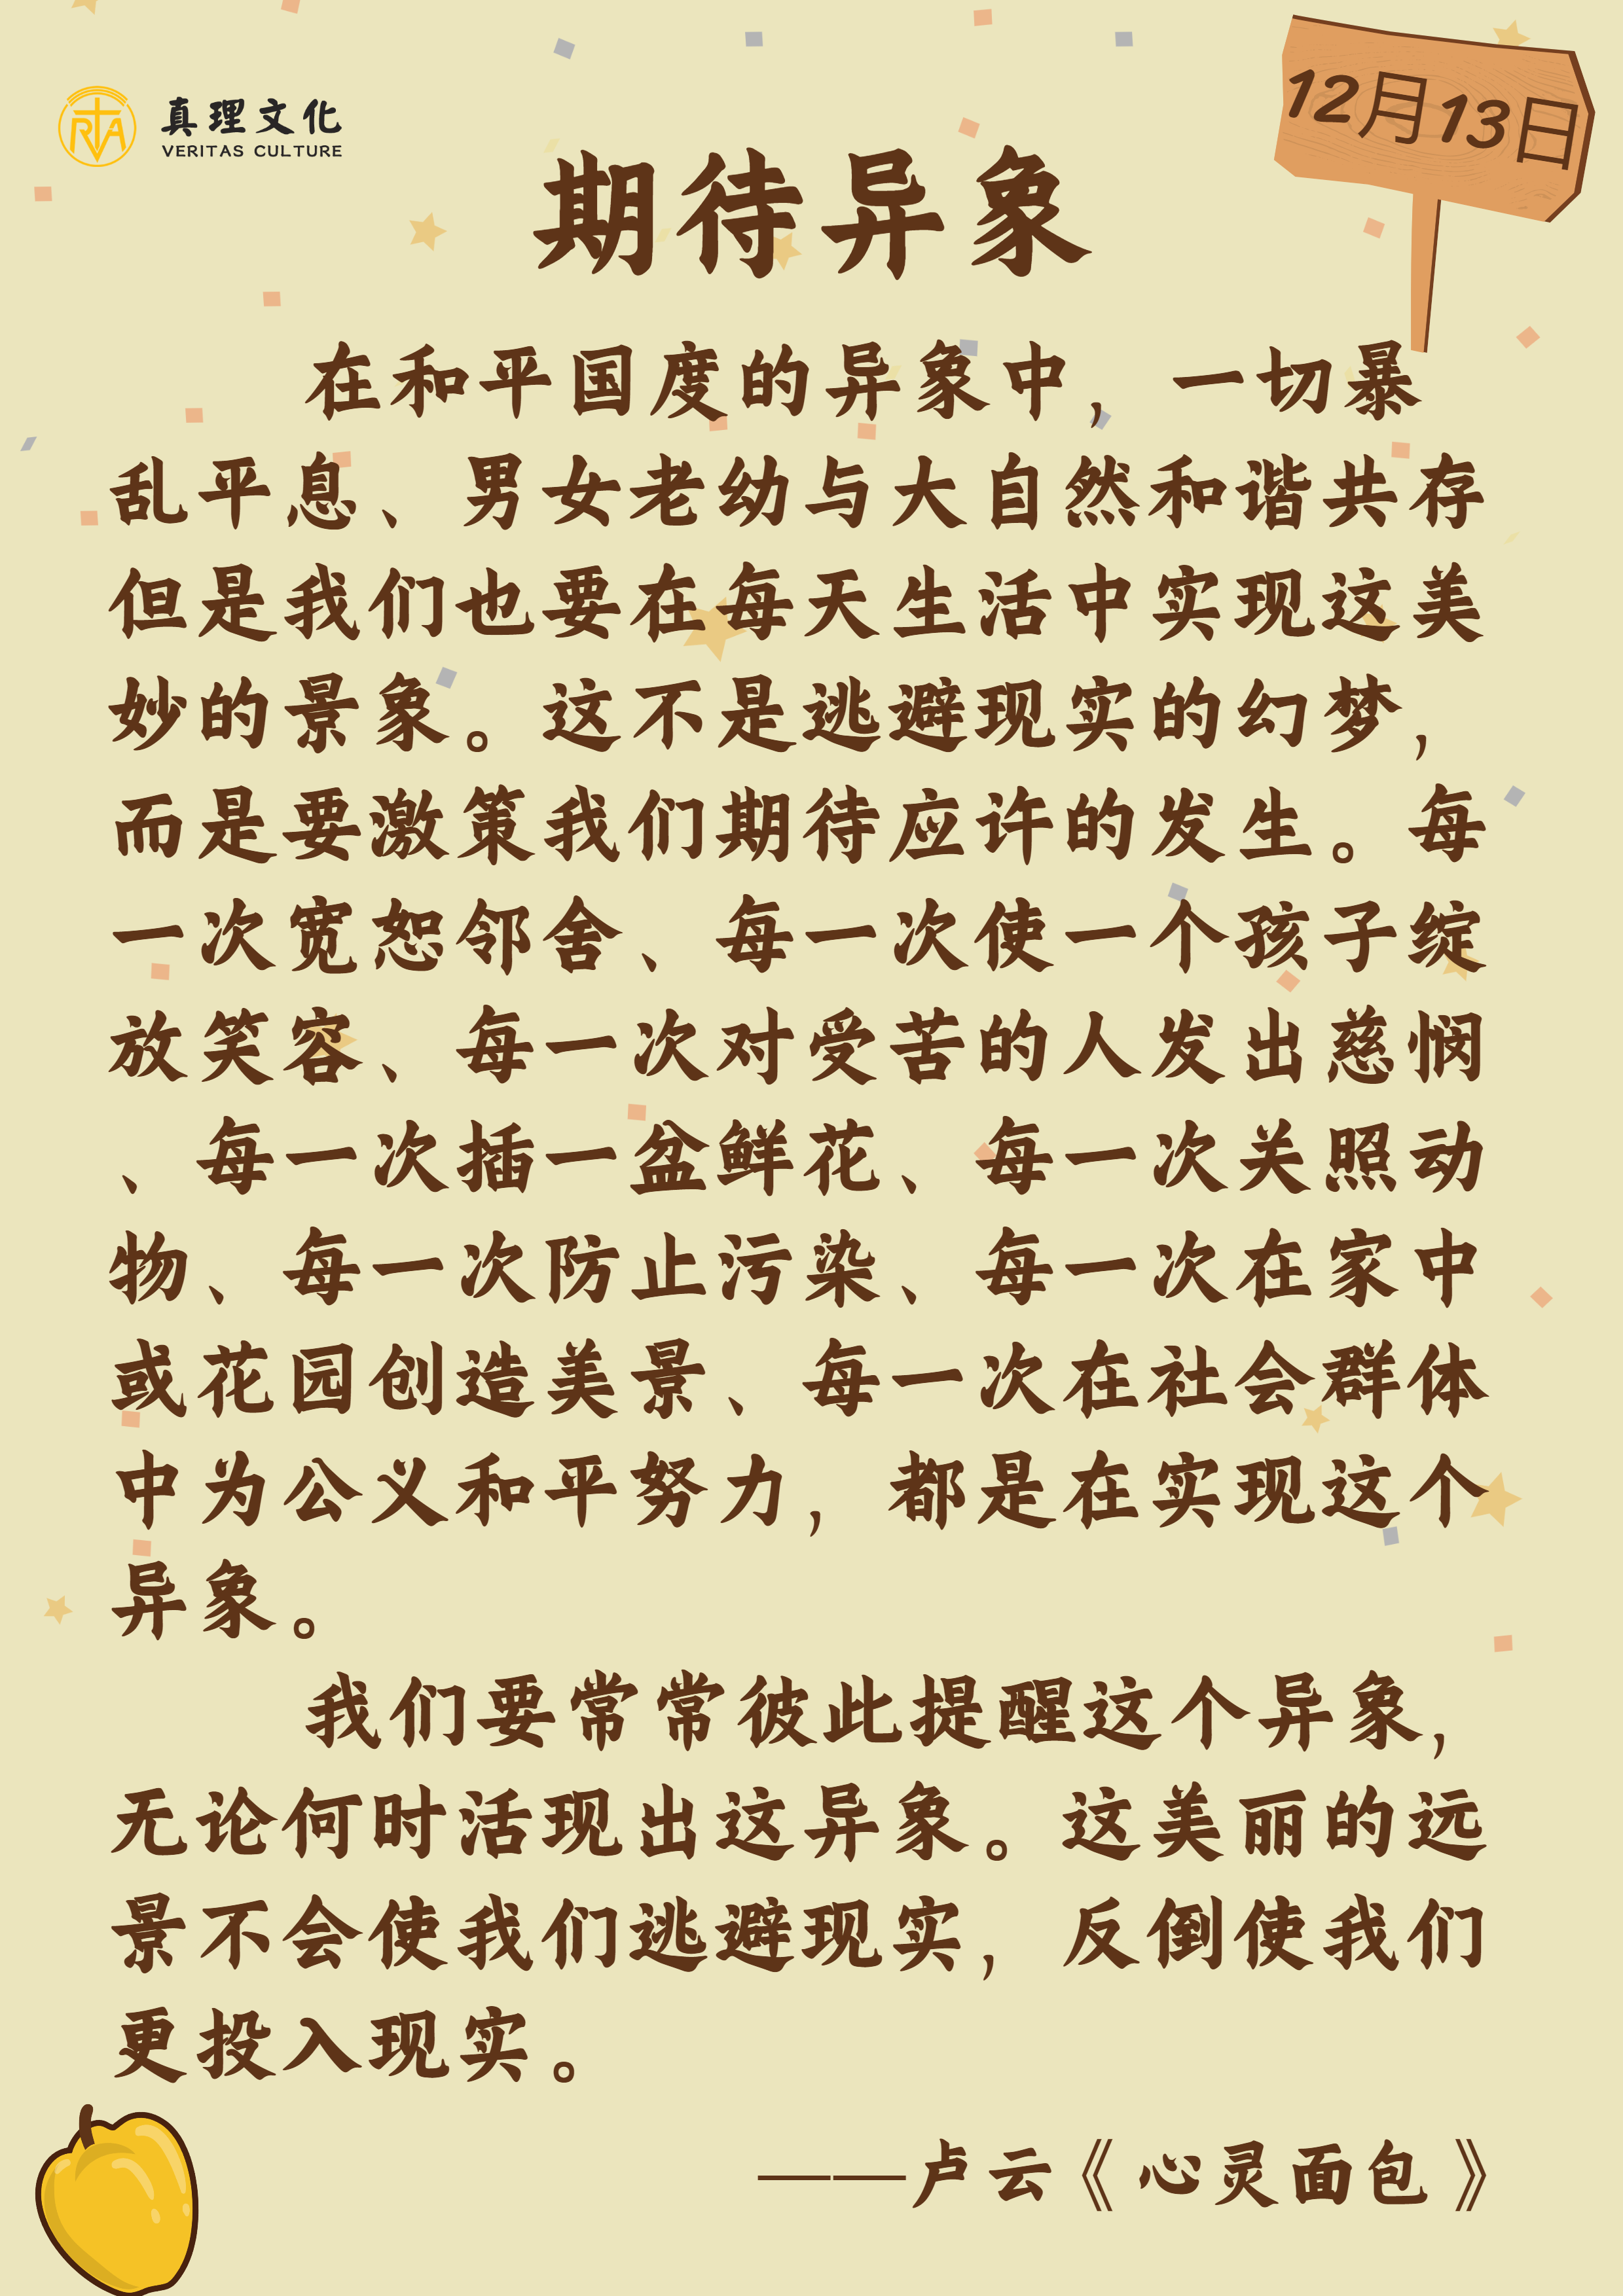 真理文化
VERITAS CULTURE
12月13日
期待异象
在和平国度的异象中，一切暴
乱平息、男女老幼与大自然和谐共存
但是我们也要在每天生活中实现这美
妙的景象。这不是逃避现实的幻梦，
而是要激策我们期待应许的发生。每
一次宽恕邻舍、每一次使一个孩子绽
放笑容、每一次对受苦的人发出慈悯
、每一次插一盆鲜花、每一次关照动
物、每一次防止污染、每一次在家中
或花园创造美景、每一次在社会群体
中为公义和平努力，都是在实现这个
异象。
我们要常常彼此提醒这个异象，
无论何时活现出这异象。这美丽的远
景不会使我们逃避现实，反倒使我们
更投入现实。
——卢云《心灵面包》